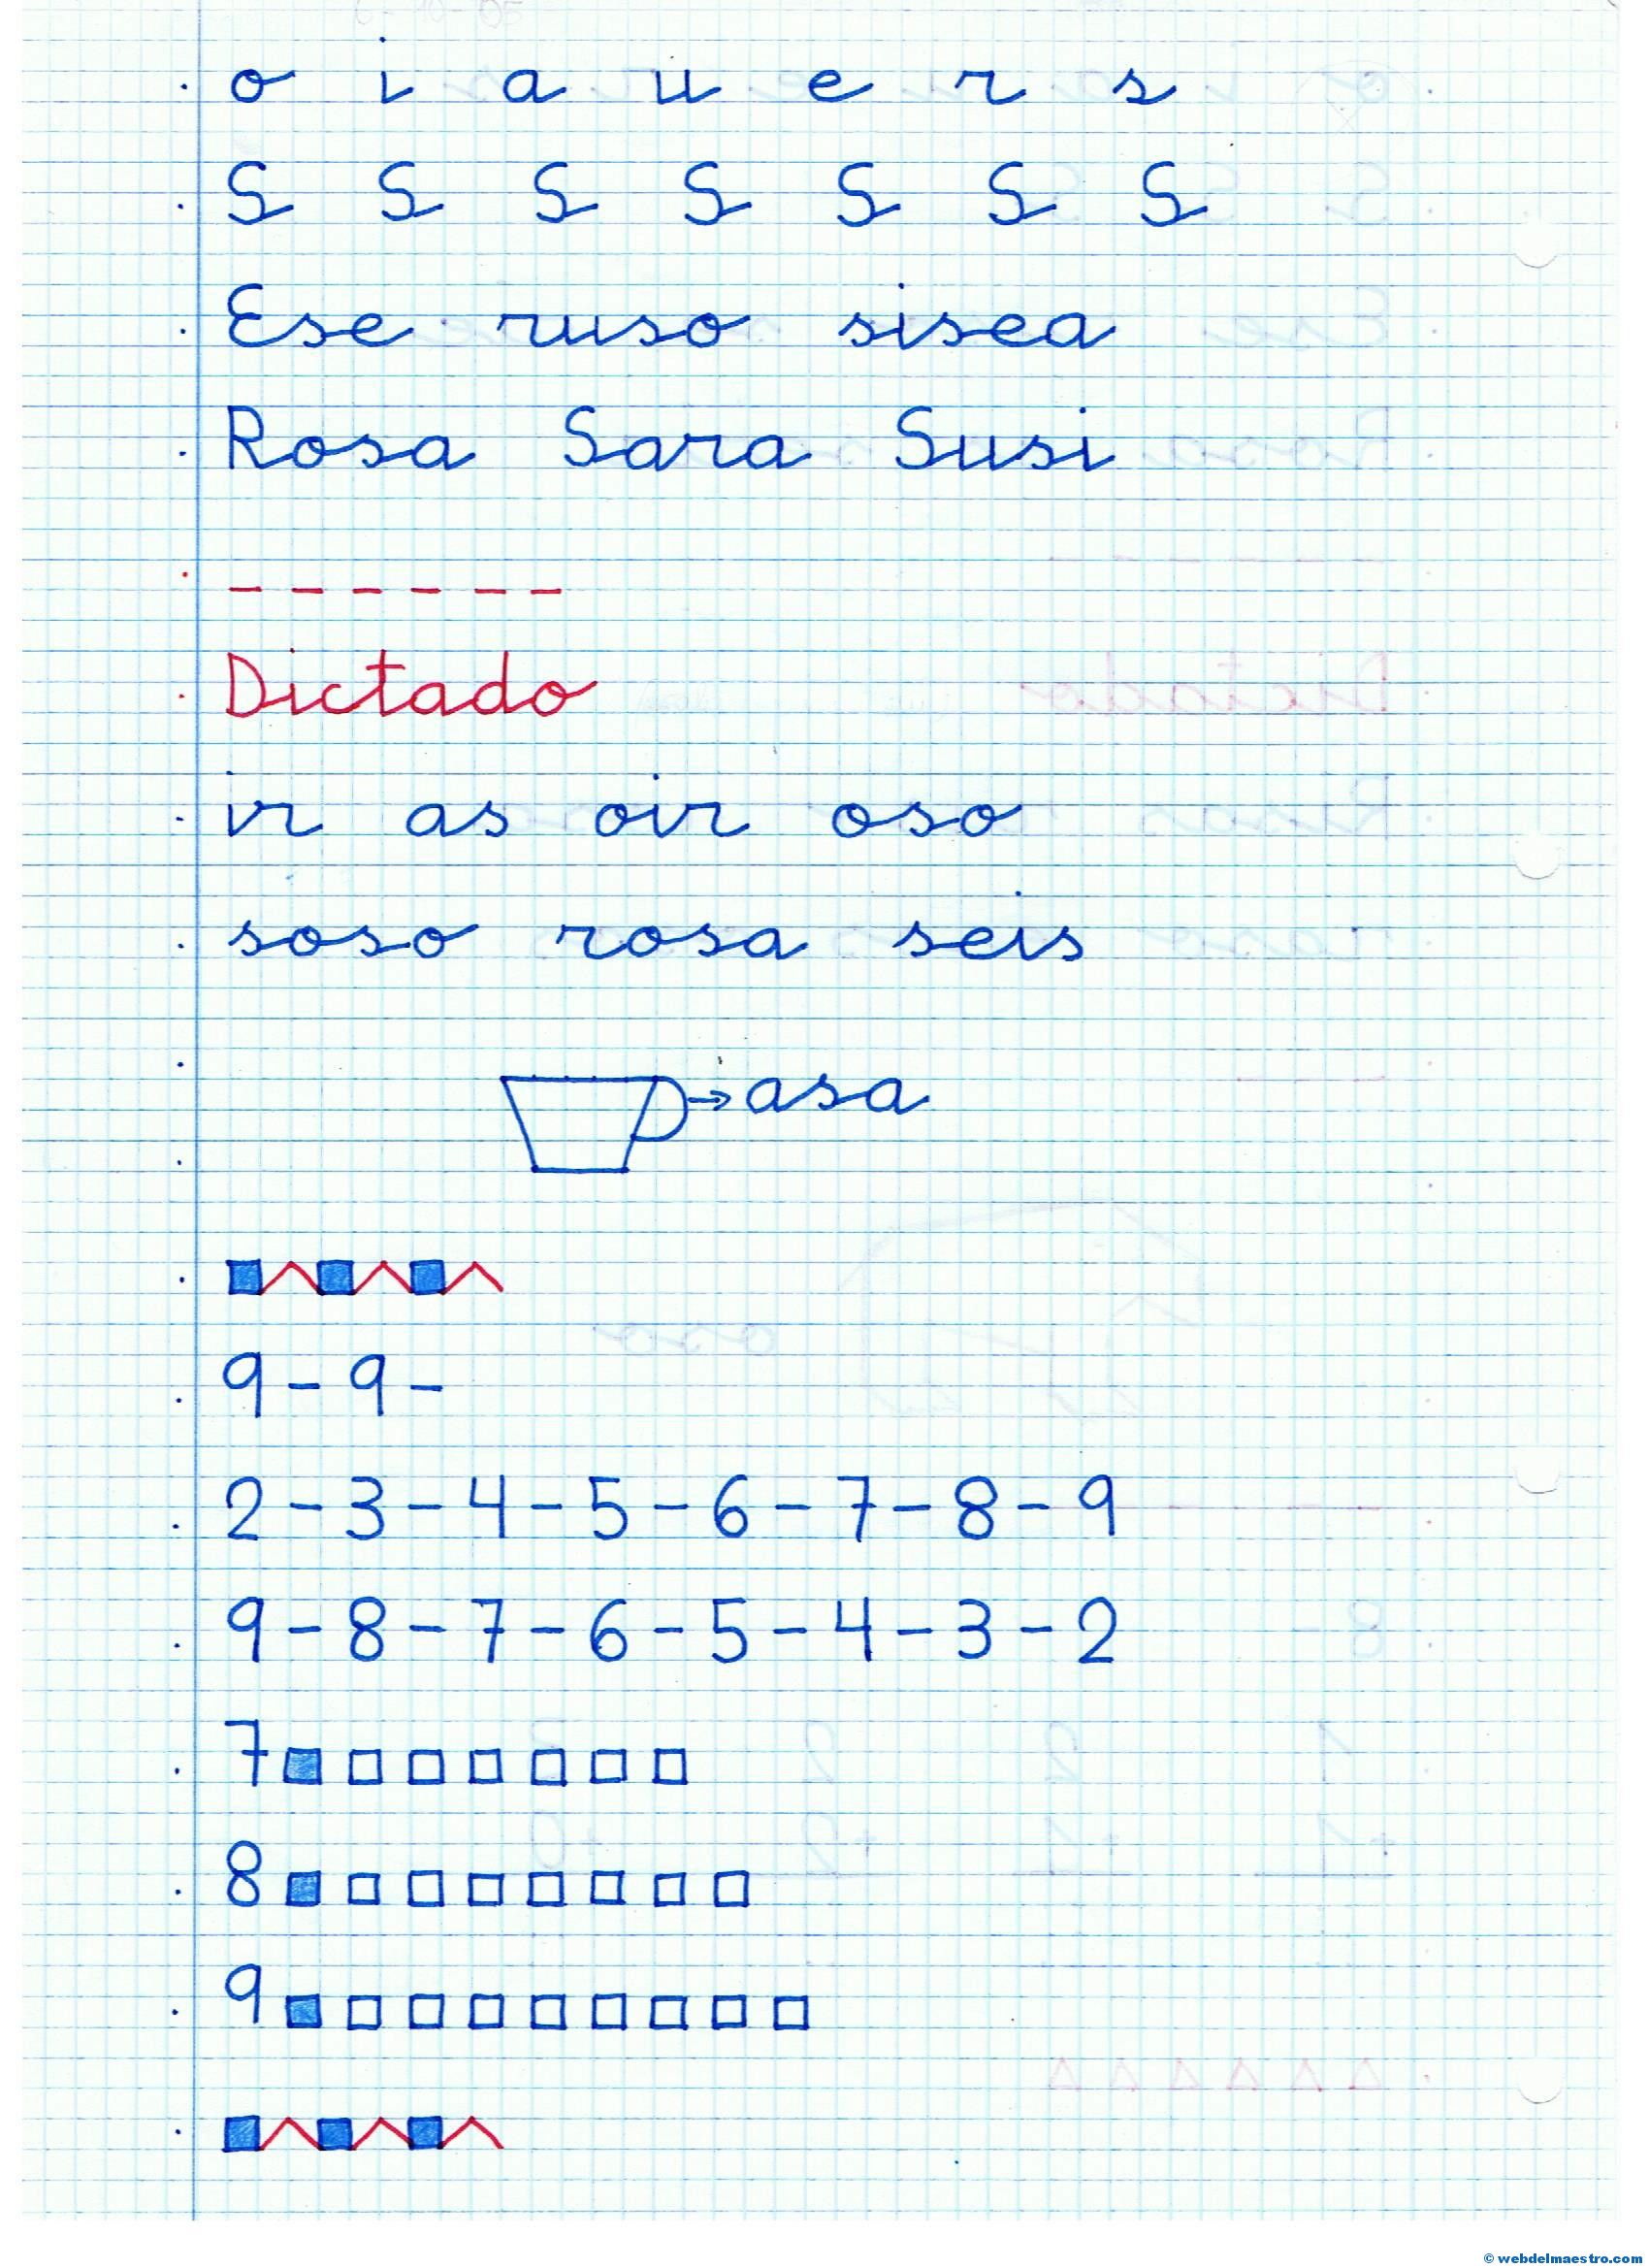 o i a u e r s
S S S S S S S
Ese ruso sisea
Rosa Sara Susi
Dictado
ir as oir oso
soso rosa seis
asa
9 - 9 -
2 - 3 - 4 - 5 - 6 - 7 - 8 - 9
9 - 8 - 7 - 6 - 5 - 4 - 3 - 2
7
8
9
© webdelmaestro.com